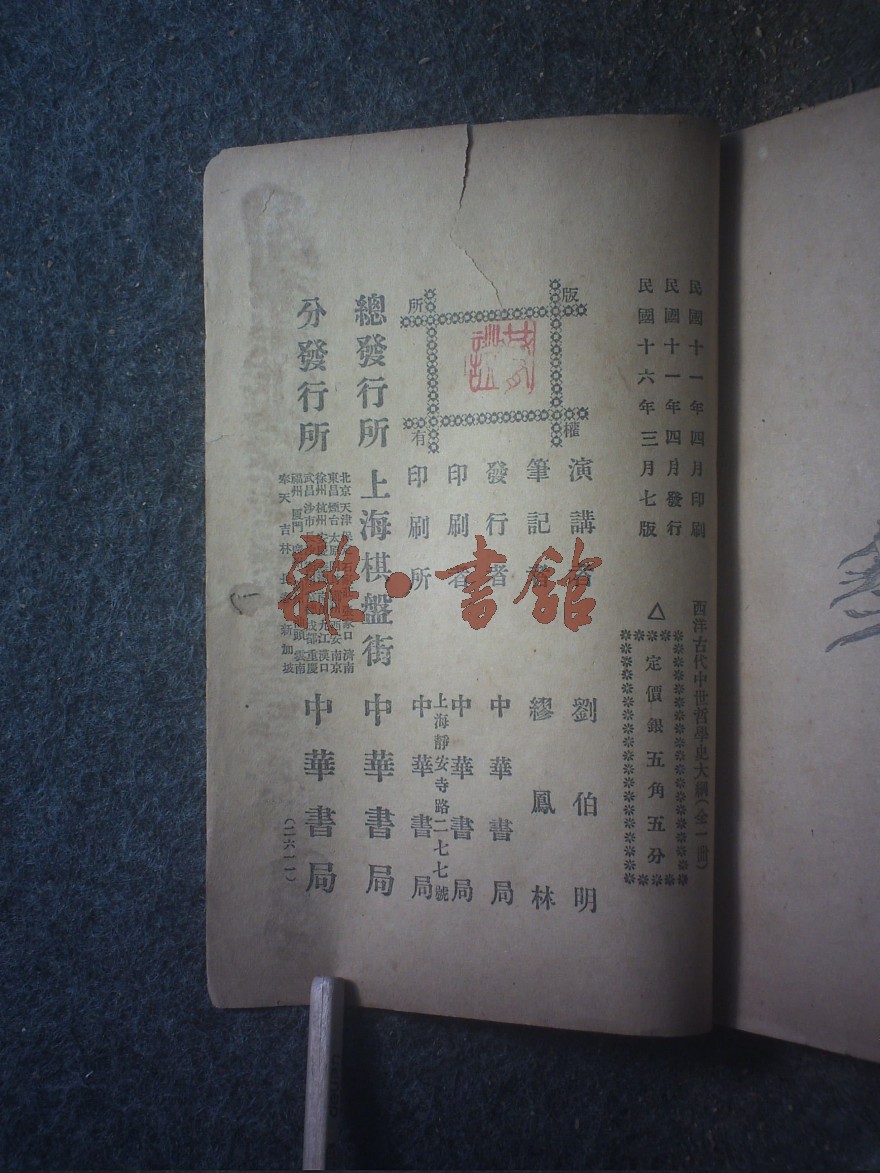 民國十一年四月印刷
民國十一年四月發行
民國十六年三月七版
西洋古代中世哲學史大綱(全一冊)
定價銀五角五分
版權所有
演講者 劉伯明
筆記者 繆鳳林
發行者 中華書局
印刷者 中華書局
印刷所 上海靜安寺路二七七號 中華書局
總發行所 上海棋盤街 中華書局
分發行所 中華書局
北京 天津 張家口 濟南
東昌 煙台 太原 西安 南京
徐州 杭州 安慶 九江 漢口
武昌 沙市 成都 重慶
福州 廈門 雲南
奉天 吉林 新加坡
(二六一一)
雜·書館